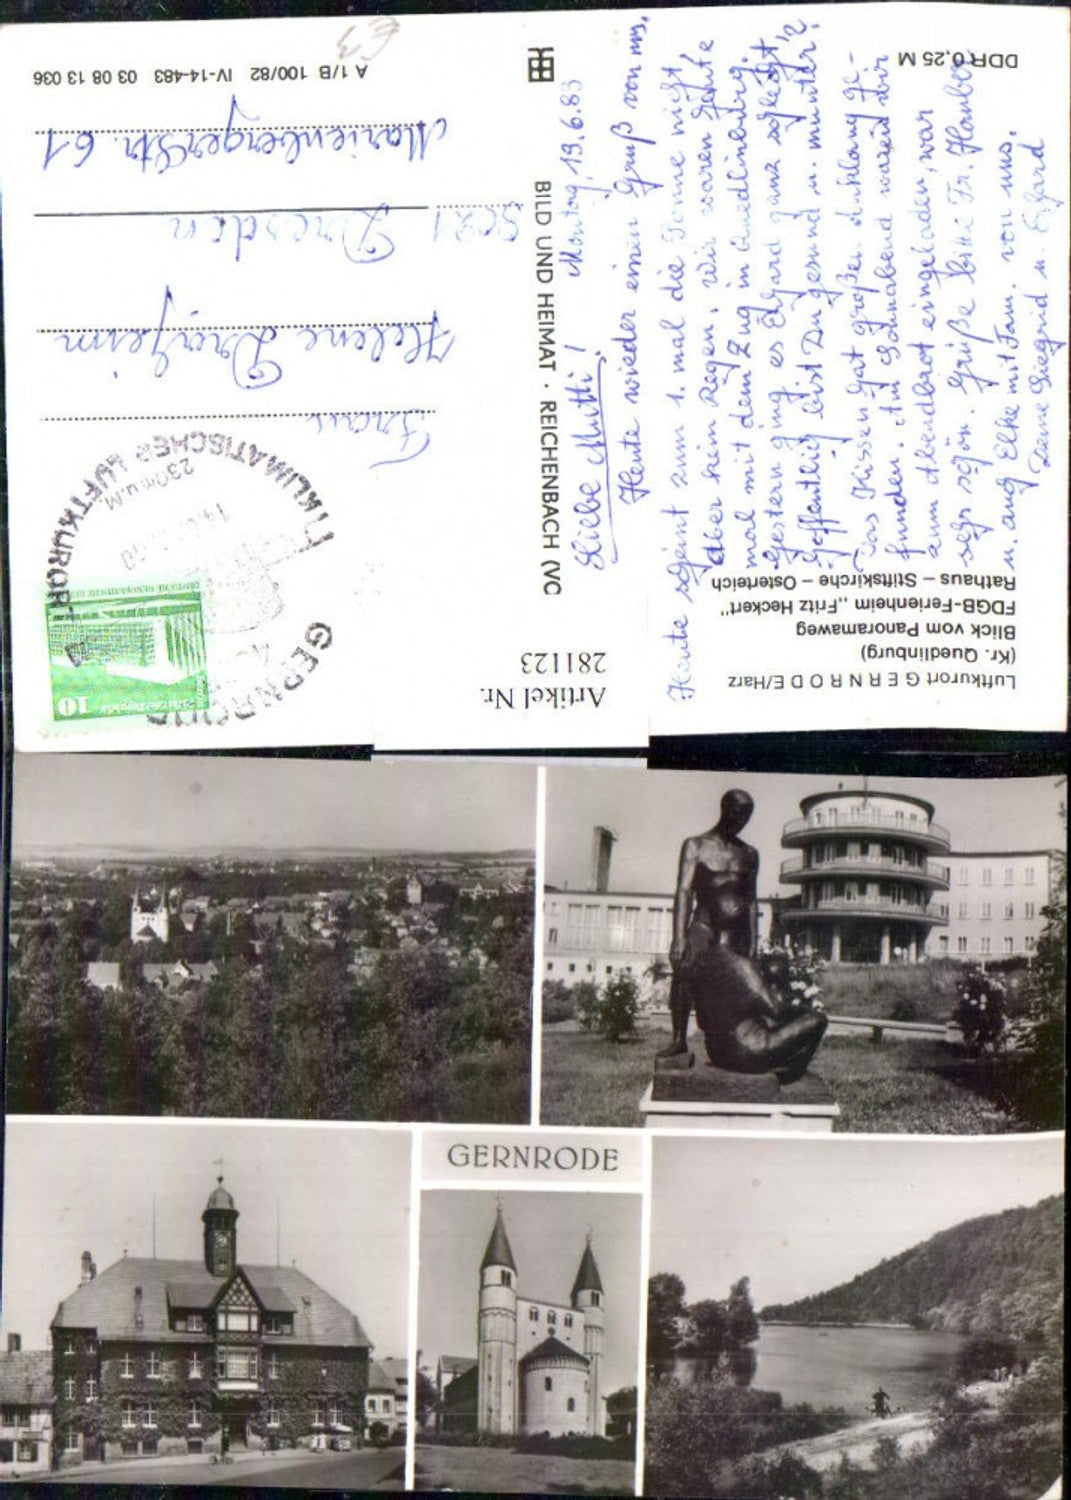 Luftkurort GERNRODE/Harz
(Kr. Quedlinburg)
Blick vom Panoramaweg
FDGB-Ferienheim „Fritz Heckert"
Rathaus – Stiftskirche – Osterteich
DDR 0,25 M
Montag, 13.6.83
Liebe Mutti!
Heute wieder einen Gruß von uns.
Heute scheint zum 1. mal die Sonne nicht
aber kein Regen. Wir waren heute
mal mit dem Zug in Quedlinburg.
Gestern ging es Erhard ganz schlecht.
Hoffentlich bist Du gesund u. munter?
Das Kissen hat großen Anklang ge-
funden. Am Sonnabend waren wir
zum Abendbrot eingeladen, war
sehr schön. Grüße bitte Fr. Hauber
u. auch Elke mit Fam. von uns.
Deine Siegrid u. Erhard
BILD UND HEIMAT · REICHENBACH (VO
A 1/B 100/82 IV-14-483 03 08 13 036
€3
Artikel Nr.
281123
GERNRODE
KLIMATISCHER LUFTKURORT
230m ü.M
10
Frau
Helene
Dresden
Marienberger Str. 61
GERNRODE